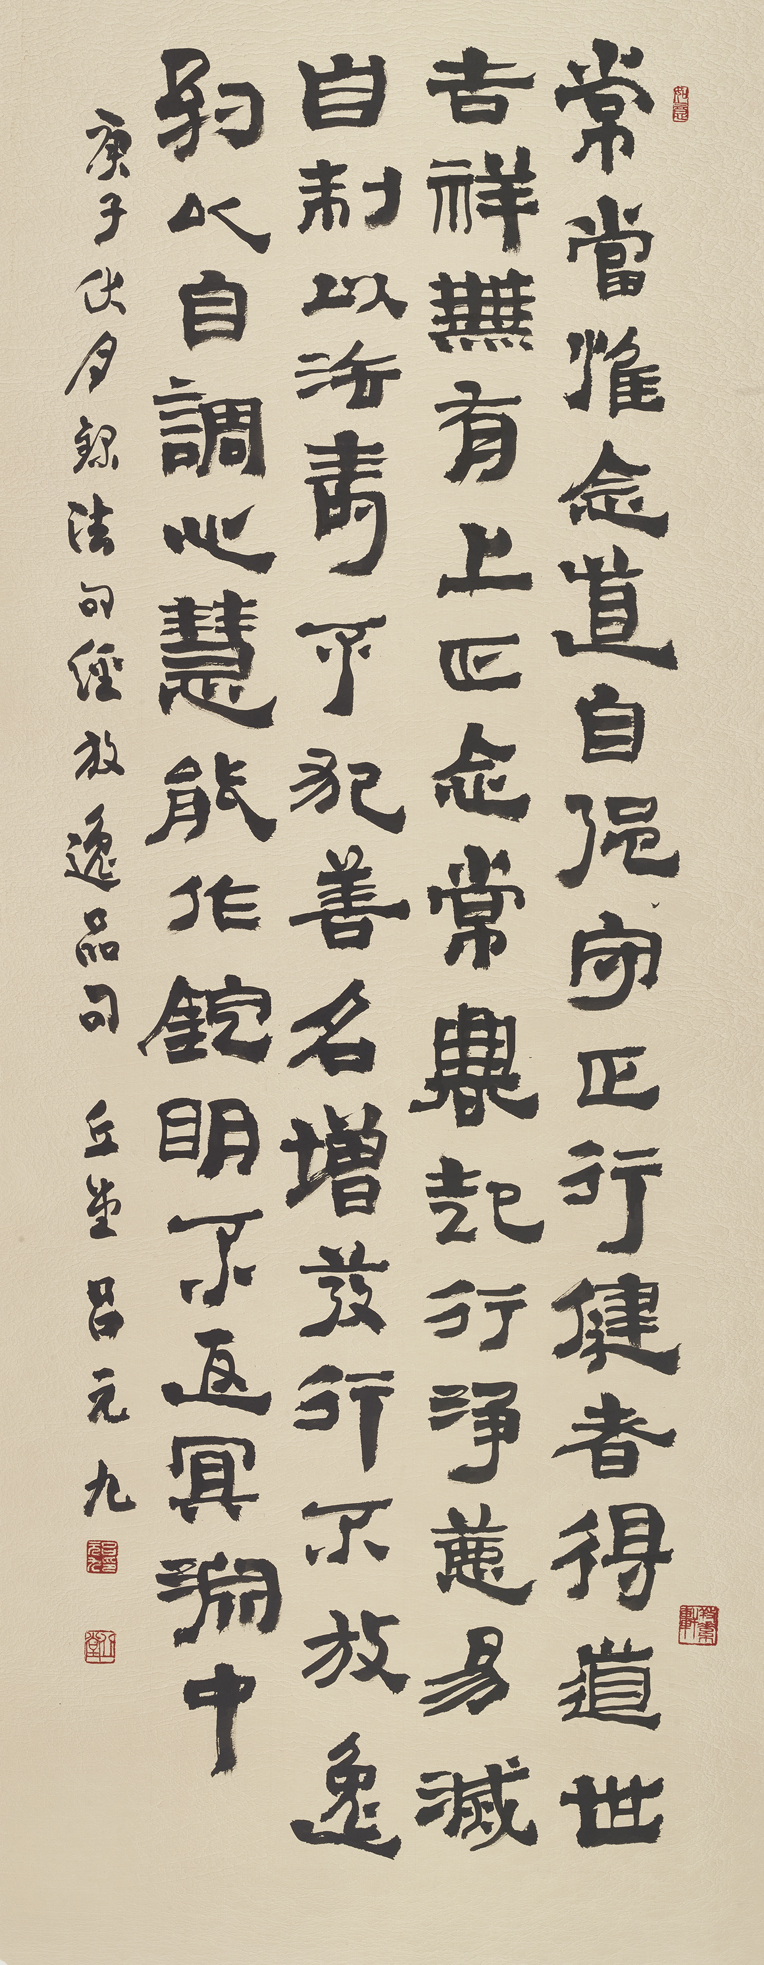 常當惟念道自强守正行健者得道世
吉祥無有上正念常興起行淨惡易滅
自制以法壽不犯善名增發行不放逸
約以自調心慧能作錠明不返冥淵中
庚子伏月錄法句經放逸品句 丘堂 呂元九
如意
丘堂